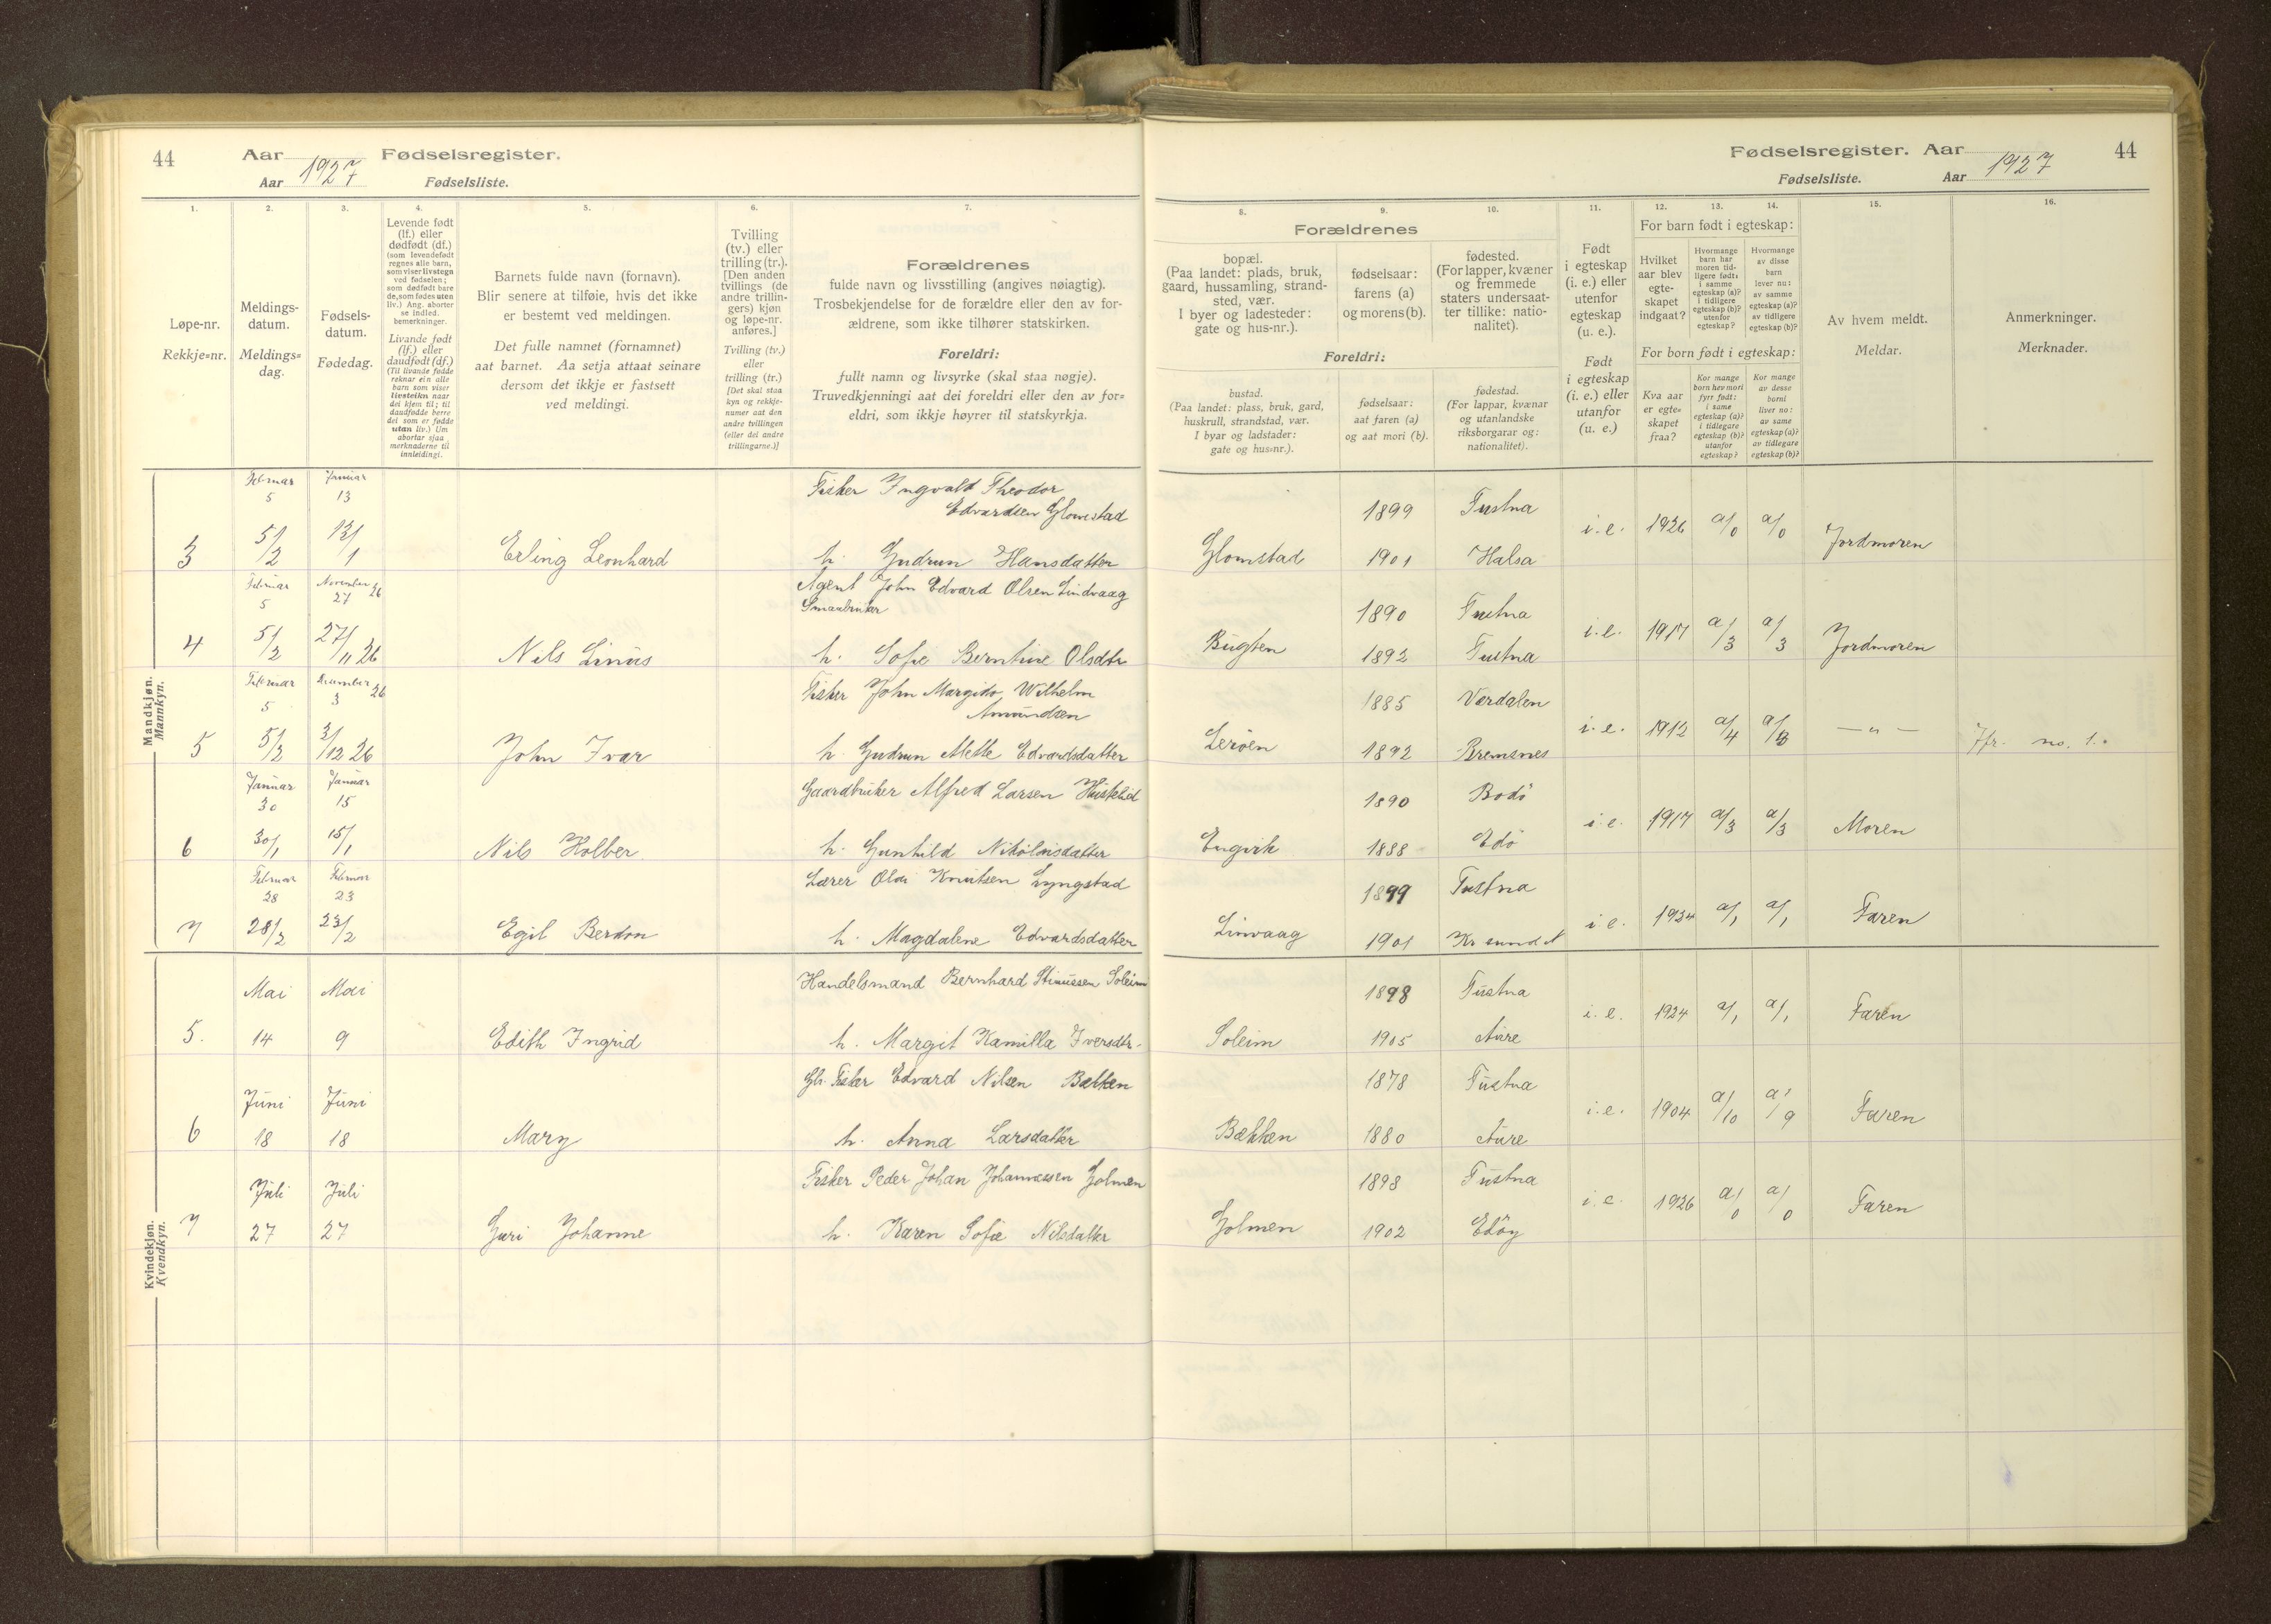 44
Aar 1927 Fødselsregister.
Aar Fødselsliste.
1.
2.
3.
4.
5.
6.
7.
Løpe-nr.
Rekkje=nr.
Meldings-
datum.
Meldings=
dag.
Fødsels-
datum.
Fødedag.
Levende født
(lf.) eller
dødfødt (df.)
(som levendefødt
regnes alle barn,
som viser livstegn
ved fødselen;
som dødfødt bare
de, som fødes uten
liv.) Ang. aborter
se indled.
bemerkninger.
Livande født
(lf.) eller
daudfødt (df.)
(Til livande fødde
reknar ein alle
barn som viser
livsteikn naar
dei kjem til; til
daudfødde berre
dei som er fødde
utan liv.) Um
abortar sjaa
merknaderne til
innleidingi.
Barnets fulde navn (fornavn).
Blir senere at tilføie, hvis det ikke
er bestemt ved meldingen.
Det fulle namnet (fornamnet)
aat barnet. Aa setja attaat seinare
dersom det ikkje er fastsett
ved meldingi.
Tvilling
(tv.) eller
trilling (tr.).
[Den anden
tvillings (de
andre trillin-
gers) kjøn
og løpe-nr.
anføres.]
Tvilling (tv.)
eller
trilling (tr.)
[Det skal staa
kyn og rekkje-
numer aat den
andre tvillingen
(eller dei andre
trillingarne.)]
Forældrenes
fulde navn og livsstilling (angives nøiagtig).
Trosbekjendelse for de forældre eller den av for-
ældrene, som ikke tilhører statskirken.
Foreldri:
fullt namn og livsyrke (skal staa nøgje).
Truvedkjenningi aat dei foreldri eller den av for=
eldri, som ikkje høyrer til statskyrkja.
Mandkjøn.
Mannkyn.
Februar Januar Fisker Ingvald Theodor
5 13 Edvardsen Glomstad
3 5/2 13/1 Erling Leonhard h. Gudrun Hansdatter
Februar November 26 Agent John Edvard Olsen Lindvaag
5 27 Smaabruker
4 5/2 27/11 26 Nils Linus h. Sofie Berntine Olsdtr
Februar December 26 Fisker John Margido Wilhelm
5 3 Amundsen
5 5/2 3/12 26 John Ivar h. Gudrun Mette Edvardsdatter
Januar Januar Gaardbruker Alfred Larsen Huskelid
30 15
6 30/1 15/1 Nils Holber h. Gunhild Nikolaisdatter
Februar Februar Lærer Olai Knutsen Lyngstad
28 23
7 28/2 23/2 Egil Berdon h. Magdalene Edvardsdatter
Kvindekjøn.
Kvendkyn.
Mai Mai Handelsmand Bernhard Soleim
5. 14 9 Edith Ingrid h. Margit Kamilla Iversdtr.
Juni Juni Gb. Fisker Edvard Nilsen Bækken
6 18 18 Mary h. Anna Larsdatter
Juli Juli Fisker Peder Johan Johannessen Golmen
7 27 27 Guri Johanne h. Karen Sofie Nilsdatter
Fødselsregister. Aar 1927
44
Fødselsliste. Aar
8.
9.
10.
11.
12.
13.
14.
15.
16.
Forældrenes
bopæl.
(Paa landet: plads, bruk,
gaard, hussamling, strand-
sted, vær.
I byer og ladesteder:
gate og hus-nr.).
fødselsaar:
farens (a)
og morens (b).
fødested.
(For lapper, kvæner
og fremmede
staters undersaat-
ter tillike: natio-
nalitet).
Foreldri:
bustad.
(Paa landet: plass, bruk, gard,
huskrull, strandstad, vær.
I byar og ladstader:
gate og hus=nr.).
fødselsaar:
aat faren (a)
og aat mori (b).
fødestad.
(For lappar, kvænar
og utanlandske
riksborgarar og:
nationalitet).
Født
i egteskap
(i. e.) eller
utenfor
egteskap
(u. e.).
Født
i egteskap
(i. e.) eller
utanfor
(u. e.)
For barn født i egteskap:
Hvilket
aar blev
egte-
skapet
indgaat?
Hvormange
barn har
moren tid-
ligere født:
i samme
egteskap (a)?
i tidligere
egteskap (b)?
utenfor
egteskap?
Hvormange
av disse
barn
lever nu:
av samme
egteskap (a)?
av tidligere
egteskap (b)?
For born født i egteskap:
Kva aar
er egte=
skapet
fraa?
Kor mange
born hev mori
fyrr født:
i same
egteskap (a)?
i tidlegare
egteskap (b)?
utanfor
egteskap?
Kor mange
av desse
borni
liver no:
av same
egteskap (a)?
av tidlegare
egteskap (b)?
Av hvem meldt.
Meldar.
Anmerkninger.
Merknader.
1899 Tustna
Glomstad 1901 Halsa i.e. 1926 a/0 a/0 Jordmoren
1890 Tustna
Bugten 1892 Tustna i.e. 1917 a/3 a/3 Jordmoren
1885 Værdalen
Lerøen 1892 Bremsnes i.e. 1912 a/4 — " — Jfr. no. 1.
1890 Bodö
Engvik 1888 Edö i.e. 1917 a/3 a/3 Moren
1899 Tustna
Linvaag 1901 Kr sund N i e. 1924 a/1 a/1 Faren
1898 Tustna
Soleim 1905 Aure i.e. 1924 a/1 a/1 Faren
1878 Tustna
Bækken 1880 Aure i.e. 1904 a/10 a/9 Faren
1898 Tustna
Golmen 1902 Edöy i.e. 1926 a/0 a/0 Faren